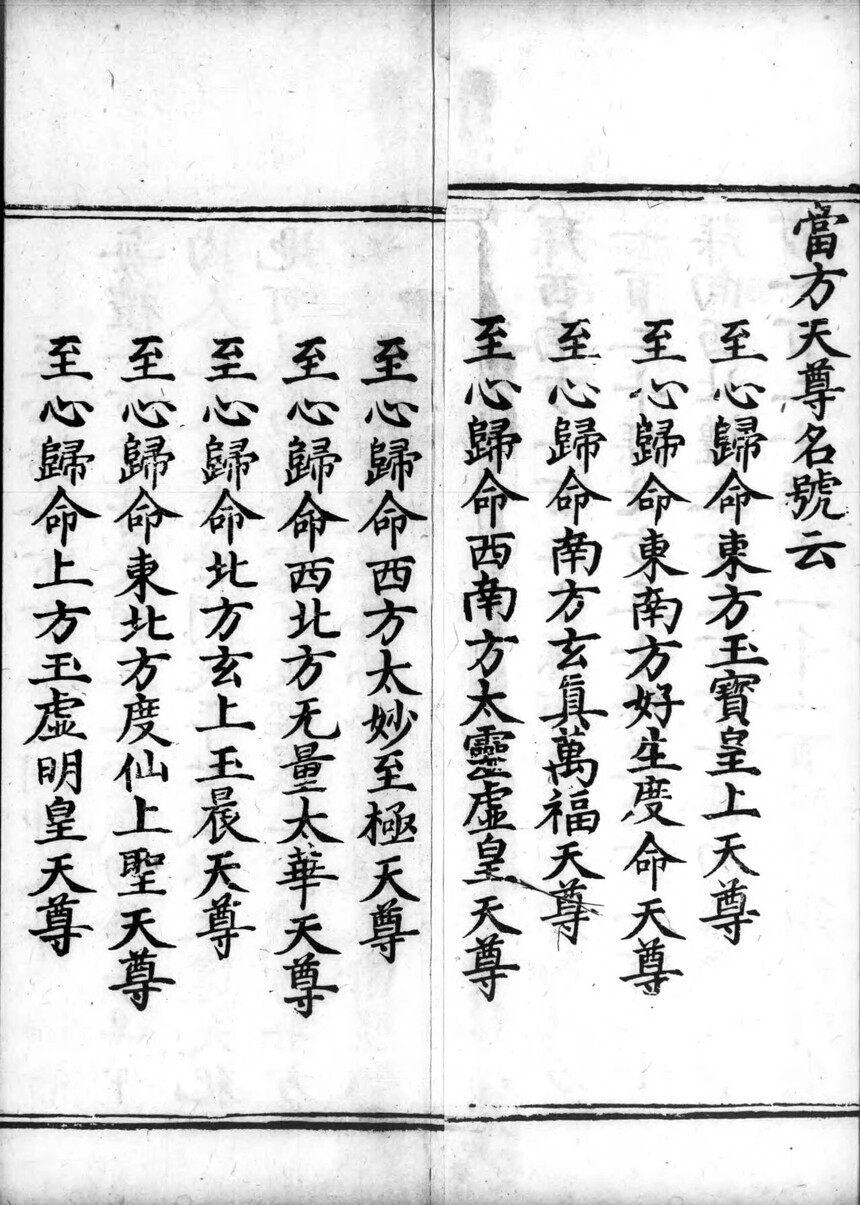 當方天尊名號云
至心歸命東方玉寶皇上天尊
至心歸命東南方好生度命天尊
至心歸命南方玄真萬福天尊
至心歸命西南方太靈虛皇天尊
至心歸命西方太妙至極天尊
至心歸命西北方无量太華天尊
至心歸命北方玄上玉晨天尊
至心歸命東北方度仙上聖天尊
至心歸命上方玉虛明皇天尊